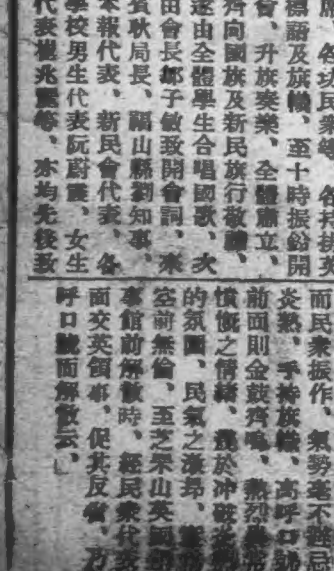 席、各界民衆等、各持抗英
標語及旗幟、至十時振鈴開
會、升旗奏樂、全體肅立、
齊向國旗及新民旗行敬禮、
遂由全體學生合唱國歌、次
由會長鄭子敏致開會詞、來
賓耿局長、福山縣劉知事、
本報代表、新民會代表、各
學校男生代表阮蔚、女生
代表兆等、亦均先後致
而民衆振作、氣勢毫不畏
炎熱、手持旗幟、高呼口號
前面則金鼓齊鳴、熱烈
憤慨之情緒、於冲破
的氛圍、民氣之激昂、
空前無倫、至芝罘山英國領
事館前解散時、經民衆代表
面交英領事、促其反省、乃
呼口號而解散云、」